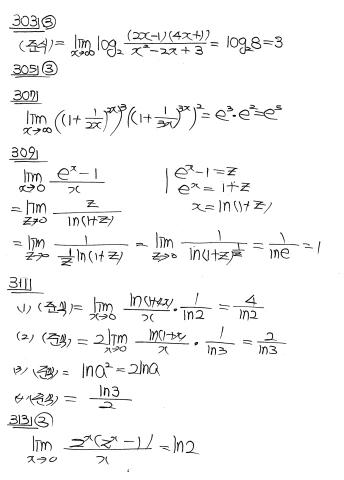 303) ⑤
(준식) = lim x→∞ log₂ (2x-1)(4x+1) / x²-2x+3 = log₂8 = 3
305) ③
307)
lim x→∞ ((1+1/2x)^2x)³((1+1/3x)^3x)² = e³·e² = e⁵
309)
lim x→0 e^x-1 / x | e^x-1=z
= lim z→0 z / ln(1+z) e^x = 1+z
x = ln(1+z)
= lim z→0 1 / (1/z)ln(1+z) = lim z→0 1 / ln(1+z)^(1/z) = 1/lne = 1
311)
1) (준식) = lim x→0 ln(1+4x) / x · 1/ln2 = 4/ln2
(2) (준식) = 2lim x→0 ln(1+x) / x · 1/ln3 = 2/ln3
(3) (준식) = lna² = 2lna
(4) (준식) = ln3/2
313) ③
lim x→0 2^x(2^x-1) / x = ln2